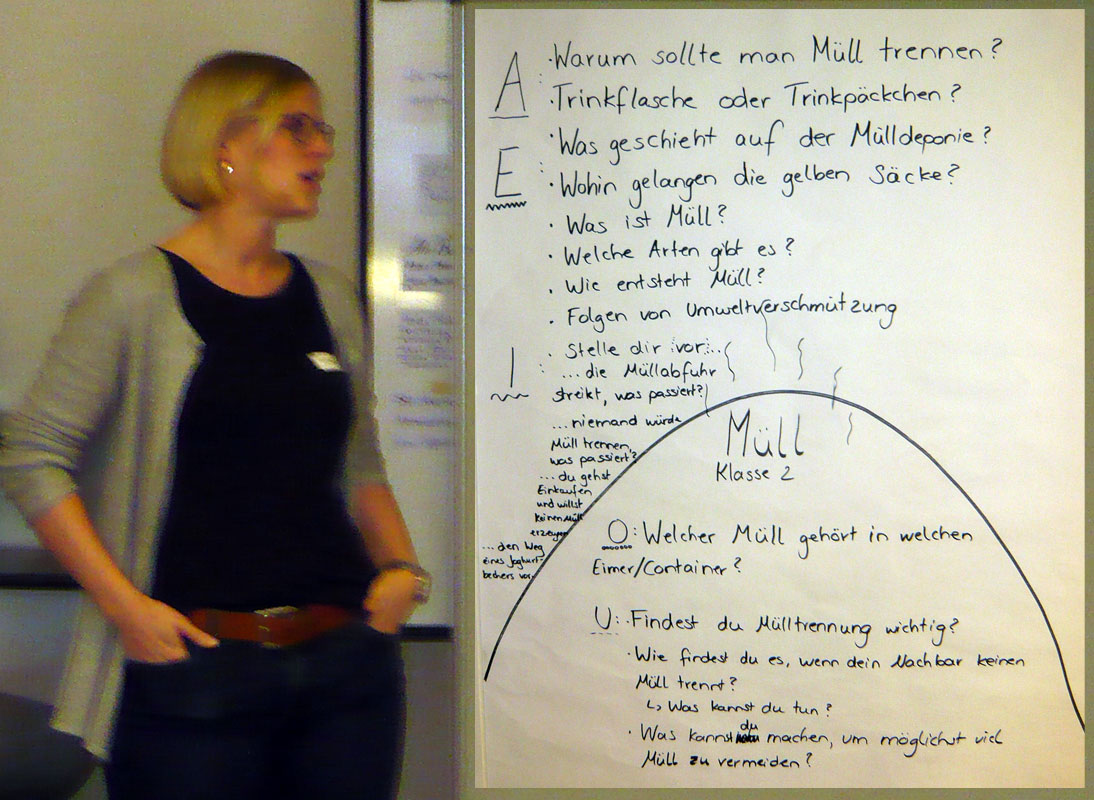 A: · Warum sollte man Müll trennen?
· Trinkflasche oder Trinkpäckchen?
E: · Was geschieht auf der Mülldeponie?
· Wohin gelangen die gelben Säcke?
· Was ist Müll?
· Welche Arten gibt es?
· Wie entsteht Müll?
· Folgen von Umweltverschmutzung
I: · Stelle dir vor...
... die Müllabfuhr
streikt, was passiert?
... niemand würde
Müll trennen,
was passiert?
... du gehst
Einkaufen
und willst
keinen Müll
erzeugen
... den Weg
eines Joghurt-
bechers vor.
Müll
Klasse 2
O: Welcher Müll gehört in welchen
Eimer/Container?
U: · Findest du Mülltrennung wichtig?
· Wie findest du es, wenn dein Nachbar keinen
Müll trennt?
↳ Was kannst du tun?
· Was kannst du machen, um möglichst viel
Müll zu vermeiden?